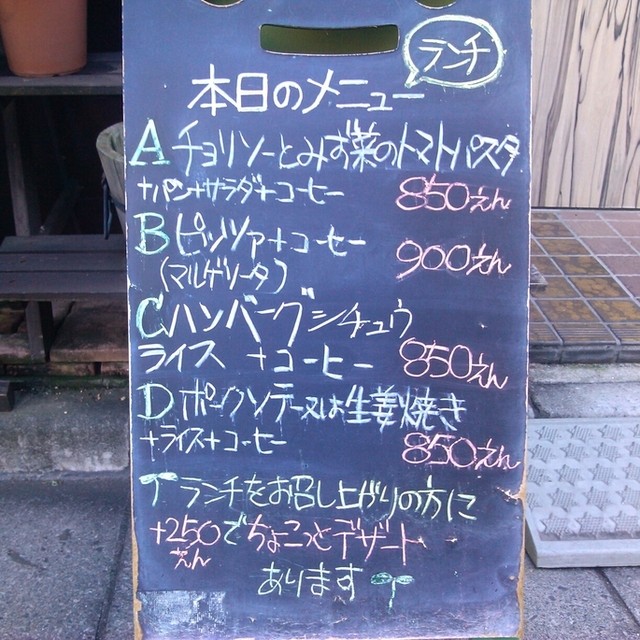 ランチ
本日のメニュー
A チョリソーとみず菜のトマトパスタ
+パン+サラダ+コーヒー 850えん
B ピッツァ+コーヒー
(マルゲリータ) 900えん
C ハンバーグシチュウ
ライス +コーヒー 850えん
D ポークソテー又は生姜焼き
+ライス+コーヒー 850えん
ランチをお召し上がりの方に
+250えんでちょこっとデザート
あります